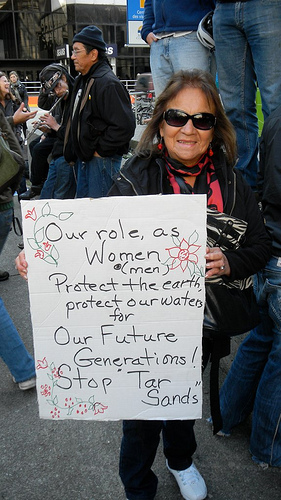 Our role, as
Women
(men)
Protect the earth,
protect our waters
for
Our Future
Generations!
Stop "Tar
Sands"